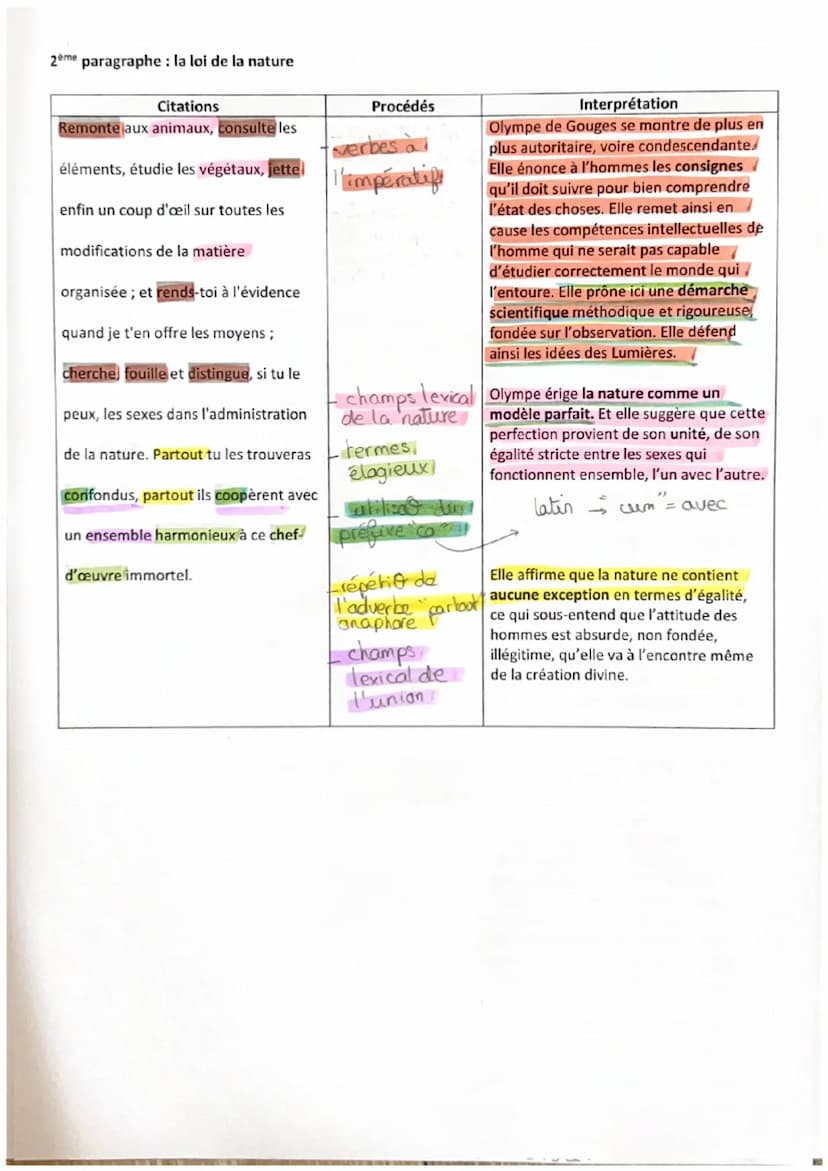 2ème paragraphe : la loi de la nature
Citations
Procédés
Interprétation
Remonte aux animaux, consulte les
éléments, étudie les végétaux, jette
enfin un coup d'œil sur toutes les
modifications de la matière
organisée ; et rends-toi à l'évidence
quand je t'en offre les moyens ;
cherche, fouille et distingue, si tu le
peux, les sexes dans l'administration
de la nature. Partout tu les trouveras
confondus, partout ils coopèrent avec
un ensemble harmonieux à ce chef-
d'œuvre immortel.
- verbes à
l'impératif
- champs lexical
de la nature
- termes
élogieux
- utilisat° du
préfixe "co"
- répétit° de
l'adverbe "partout"
anaphore
- champs
lexical de
l'union
Olympe de Gouges se montre de plus en
plus autoritaire, voire condescendante.
Elle énonce à l'hommes les consignes
qu'il doit suivre pour bien comprendre
l'état des choses. Elle remet ainsi en
cause les compétences intellectuelles de
l'homme qui ne serait pas capable
d'étudier correctement le monde qui
l'entoure. Elle prône ici une démarche
scientifique méthodique et rigoureuse,
fondée sur l'observation. Elle défend
ainsi les idées des Lumières.
Olympe érige la nature comme un
modèle parfait. Et elle suggère que cette
perfection provient de son unité, de son
égalité stricte entre les sexes qui
fonctionnent ensemble, l'un avec l'autre.
latin → cum" = avec
Elle affirme que la nature ne contient
aucune exception en termes d'égalité,
ce qui sous-entend que l'attitude des
hommes est absurde, non fondée,
illégitime, qu'elle va à l'encontre même
de la création divine.